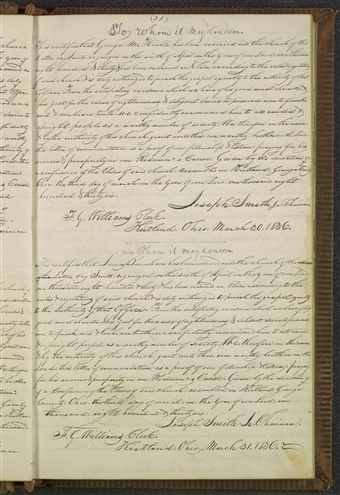 (31)
To whom it may concern.
This certifies that George M. Hinkle has been received into the church of the
Latter day Saints, organized on the sixth of April in the year of our Lord one thousand
eight hundred & thirty & has been ordained an Elder according to the rules & regulations
of said church & is duly authorized to preach the gospel agreeably to the authority of that
office. From the satisfactory evidence which we have of his good moral character, &
his zeal for the cause of righteousness & diligent desire to persuade men to forsake
evil & embrace truth we confidently recommend him to all candid &
upright people as a worthy member of society. We therefore in the name
& by the authority of this church grant unto this our worthy brother in the Lord
this letter of commendation as a proof of our fellowship & esteem praying for his
success & prosperity in our Redeemer's Cause. Given by the direction of
a conference of the Elders of said church assembled in Kirtland Geauga County
Ohio the third day of March in the year of our Lord one thousand eight
hundred & thirty six.
Joseph Smith Jr. Chairman
F. G. Williams Clerk.
Kirtland Ohio March 30, 1836.
To Whom it may concern
This certifies that has been received into the church of the
Latter day Saints organized on the sixth of April in the year of our Lord
one thousand eight hundred & thirty & has been ordained an Elder according to the
rules & regulations of said church & is duly authorized to preach the gospel agreeably
to the authority of that Office. From the satisfactory evidence which we have of his
good moral character & his zeal for the cause of righteousness & diligent desire to persuade
men to forsake evil & embrace truth we confidently recommend him to all candid
& upright people as a worthy member of society. We therefore in the name
& by the authority of this church grant unto this our worthy brother in the
Lord this letter of commendation as a proof of our fellowship & esteem praying
for his success & prosperity in our Redeemer's Cause. Given by the direction
of a conference of the Elders of said church assembled in Kirtland Geauga
County Ohio the third day of March in the year of our Lord one
thousand eight hundred & thirty six.
Joseph Smith Jr. Chairman.
F. G. Williams Clerk.
Kirtland Ohio, March 31, 1836.